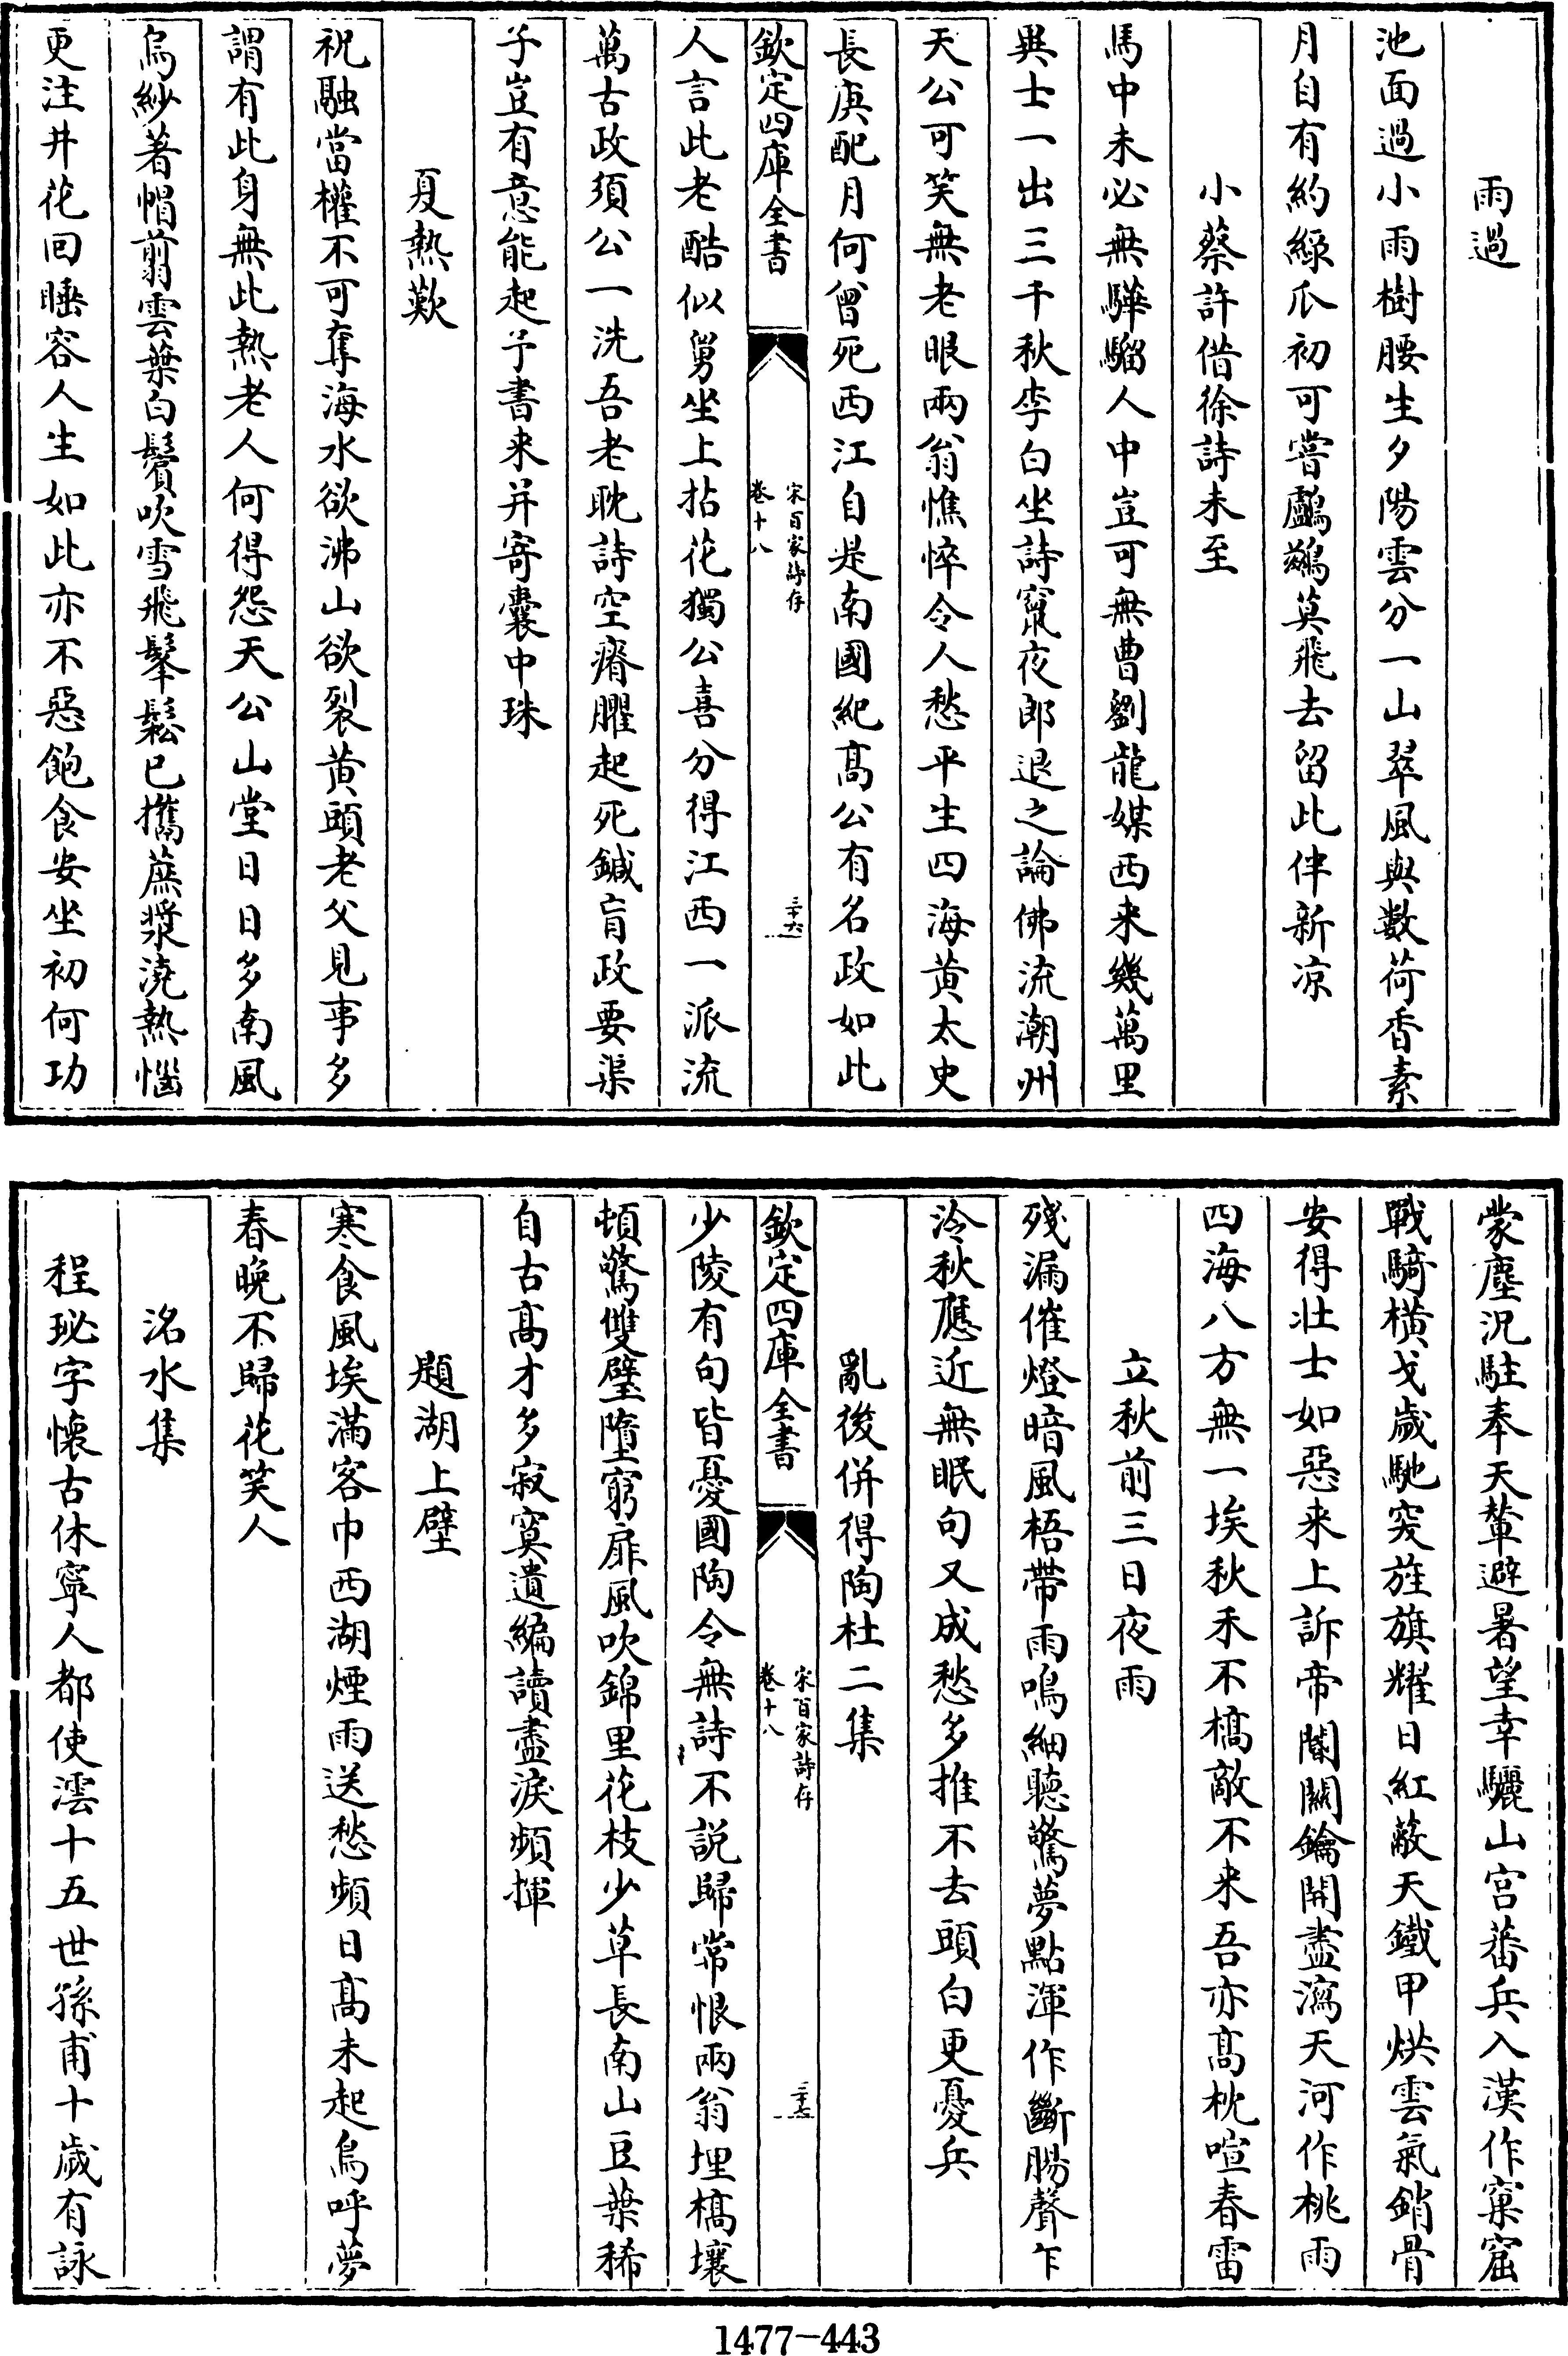 雨過
池面過小雨樹腰生夕陽雲分一山翠風與數荷香素
月自有約緑瓜初可嘗鸕鷀莫飛去留此伴新凉
小蔡許借徐詩未至
馬中未必無驊騮人中豈可無曹劉龍媒西来幾萬里
異士一出三千秋李白坐詩竄夜郎退之論佛流潮州
天公可笑無老眼兩翁憔悴令人愁平生四海黄太史
長庚配月何曾死西江自是南國紀髙公有名政如此
欽定四庫全書
宋百家詩存
卷十八
三十六
人言此老酷似舅坐上拈花獨公喜分得江西一派流
萬古政須公一洗吾老耽詩空瘠臞起死鍼肓政要渠
子豈有意能起予書来并寄囊中珠
夏熱歎
祝融當權不可奪海水欲沸山欲裂黄頭老父見事多
謂有此身無此熱老人何得怨天公山堂日日多南風
烏紗著帽翦雲葉白鬢吹雪飛鬔鬆已攜蔗漿澆熱惱
更注井花回睡容人生如此亦不惡飽食安坐初何功
蒙塵況駐奉天輦避暑望幸驪山宫蕃兵入漢作窠窟
戰騎橫戈歲馳突旌旗耀日紅蔽天鐵甲烘雲氣銷骨
安得壯士如惡来上訴帝閽關鑰開盡瀉天河作桃雨
四海八方無一埃秋禾不槁敵不来吾亦髙枕喧春雷
立秋前三日夜雨
殘漏催燈暗風梧帶雨鳴細聽驚夢點渾作斷腸聲乍
泠秋應近無眠句又成愁多推不去頭白更憂兵
亂後併得陶杜二集
欽定四庫全書
宋百家詩存
卷十八
三十七
少陵有句皆憂國陶令無詩不説歸常恨兩翁埋槁壤
頓驚雙璧墮窮扉風吹錦里花枝少草長南山豆葉稀
自古髙才多寂寞遺編讀盡淚頻揮
題湖上壁
寒食風埃滿客巾西湖煙雨送愁頻日髙未起烏呼夢
春晚不歸花笑人
洺水集
程珌字懷古休寧人都使澐十五世孫甫十歲有詠
1477-443